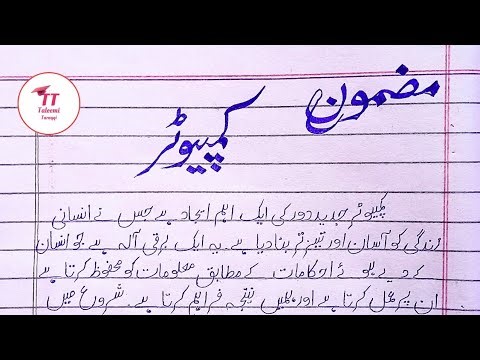 TT
Taleemi
Taraqqi
مضمون
کمپیوٹر
کمپیوٹر جدید دور کی ایک اہم ایجاد ہے جس نے انسانی
زندگی کو آسان اور تیز تر بنا دیا ہے۔ یہ ایک برقی آلہ ہے جو انسان
کے دیے ہوئے احکامات کے مطابق معلومات کو محفوظ کرتا ہے
ان پر عمل کرتا ہے اور ہمیں نتیجہ فراہم کرتا ہے۔ شروع میں